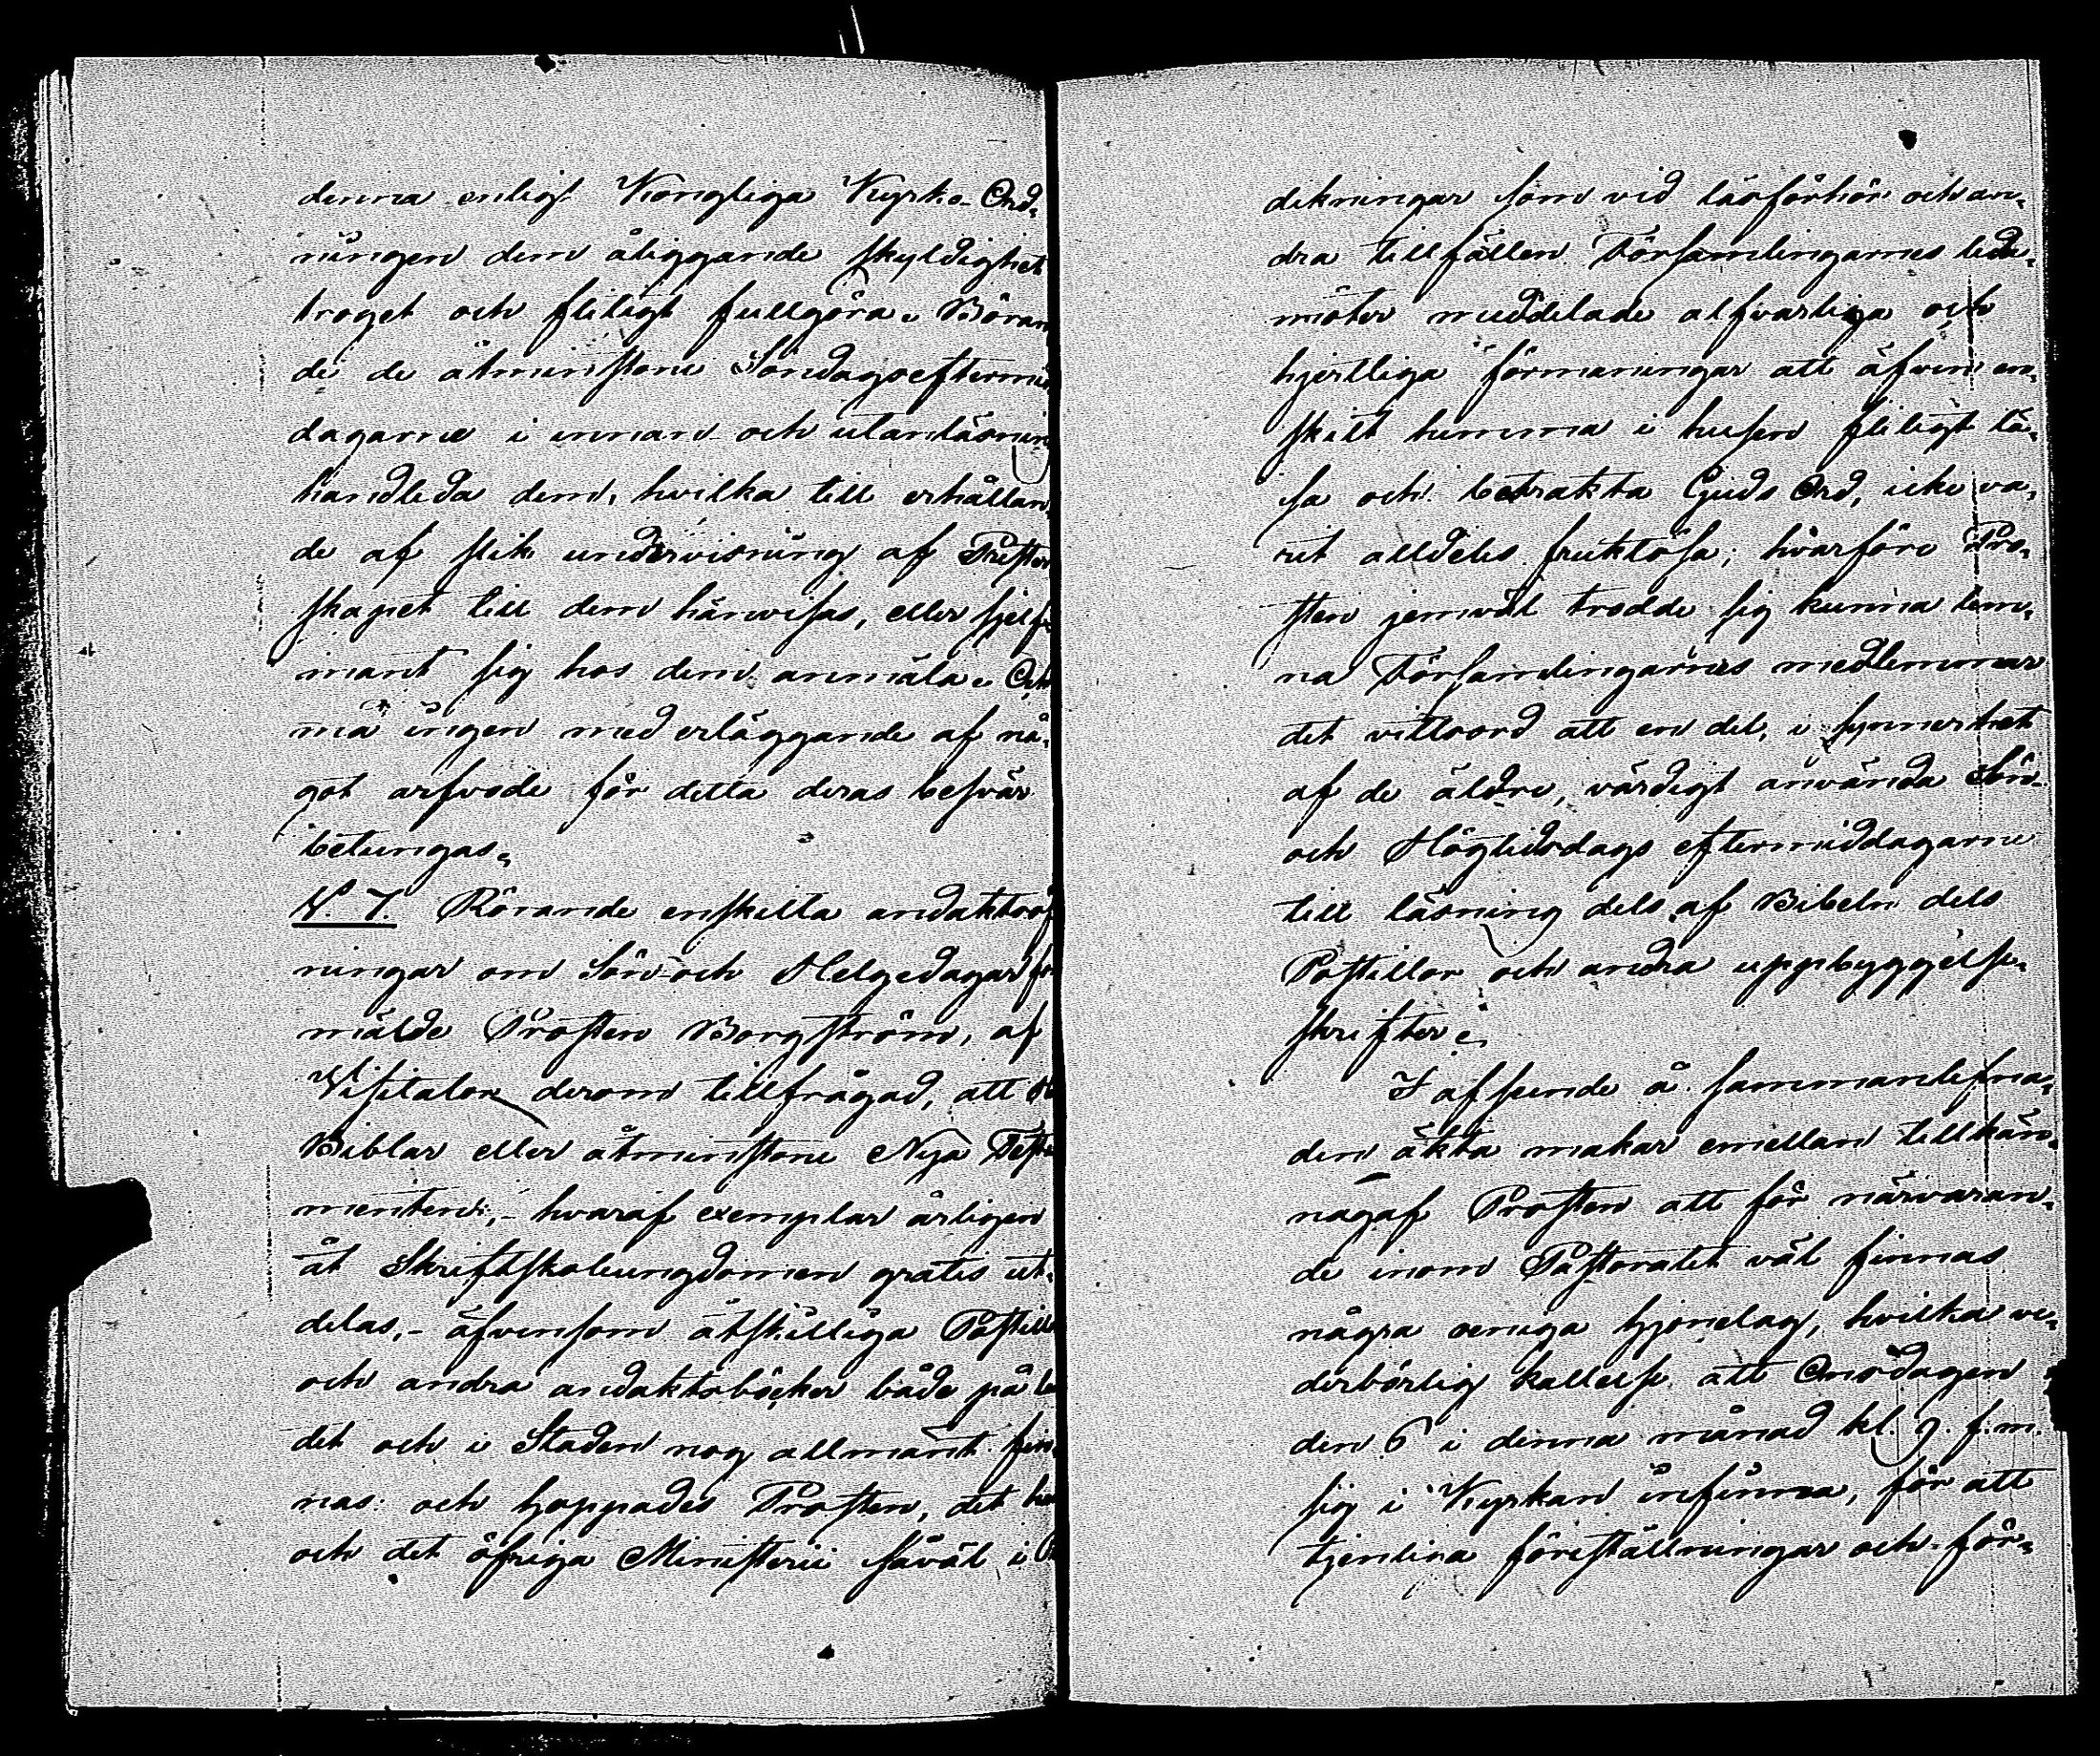 denna enligt Kongliga Kyrko-Ord-
ningen dem åliggande skyldighet
troget och flitigt fullgöra. Böran
de de åtminstone Söndagseftermid
dagarne i innan- och utanläsning
handleda dem, hvilka till erhållan-
de af slik undervisning af Prester
skapet till dem hänvisas, eller sjelf-
mant sig hos dem anmäla. Och
må ingen med erläggande af nå-
got arfvode för detta deras besvär
betungas.
§. 7. Rörande enskilta andaktsöf
ningar om Sön- och Helgedagar för
mälde Prosten Borgström, af
Visitator derom tillfrågad, att
Biblar eller åtminstone Nya Testa
menten,- hvaraf exemplar årligen
åt Skriftskoleungdomen gratis ut-
delas,- äfvensom åtskilliga Postillo
och andra andaktsböcker både på lan
det och i Staden nog allmänt fin-
nas och hoppades Prosten, det hans
och det öfriga Ministerii såväl i
dikningar som vid läsförhör och an-
dra tillfällen Församlingarnes leda-
möter meddelade alfvarliga och
hjertliga förmaningar att äfven en-
skilt hemma i husen flitigt lä-
sa och betrakta Guds Ord, icke va-
rit alldeles fruktlösa; hvarföre Pro-
sten jemväl trodde sig kunna lem-
na Församlingarnes medlemmar
det vittsord att en del, i synnerhet
af de äldre, värdigt använda Sön-
och Högtidsdags eftermiddagarne
till läsning dels af Bibeln dels
Postillor och andra uppbyggelse-
skrifter.
I afseende å sammanlefna-
den äkta makar emellan tillkän-
nagaf Prosten att för närvaran-
de inom Pastoratet väl finnas
några oeniga hjonelag, hvilka ve-
derbörlig kallelse att Onsdagen
den 6 i denna månad kl. 9. f.m.
sig i Kyrkan infinna, för att
tjenliga föreställningar och för-